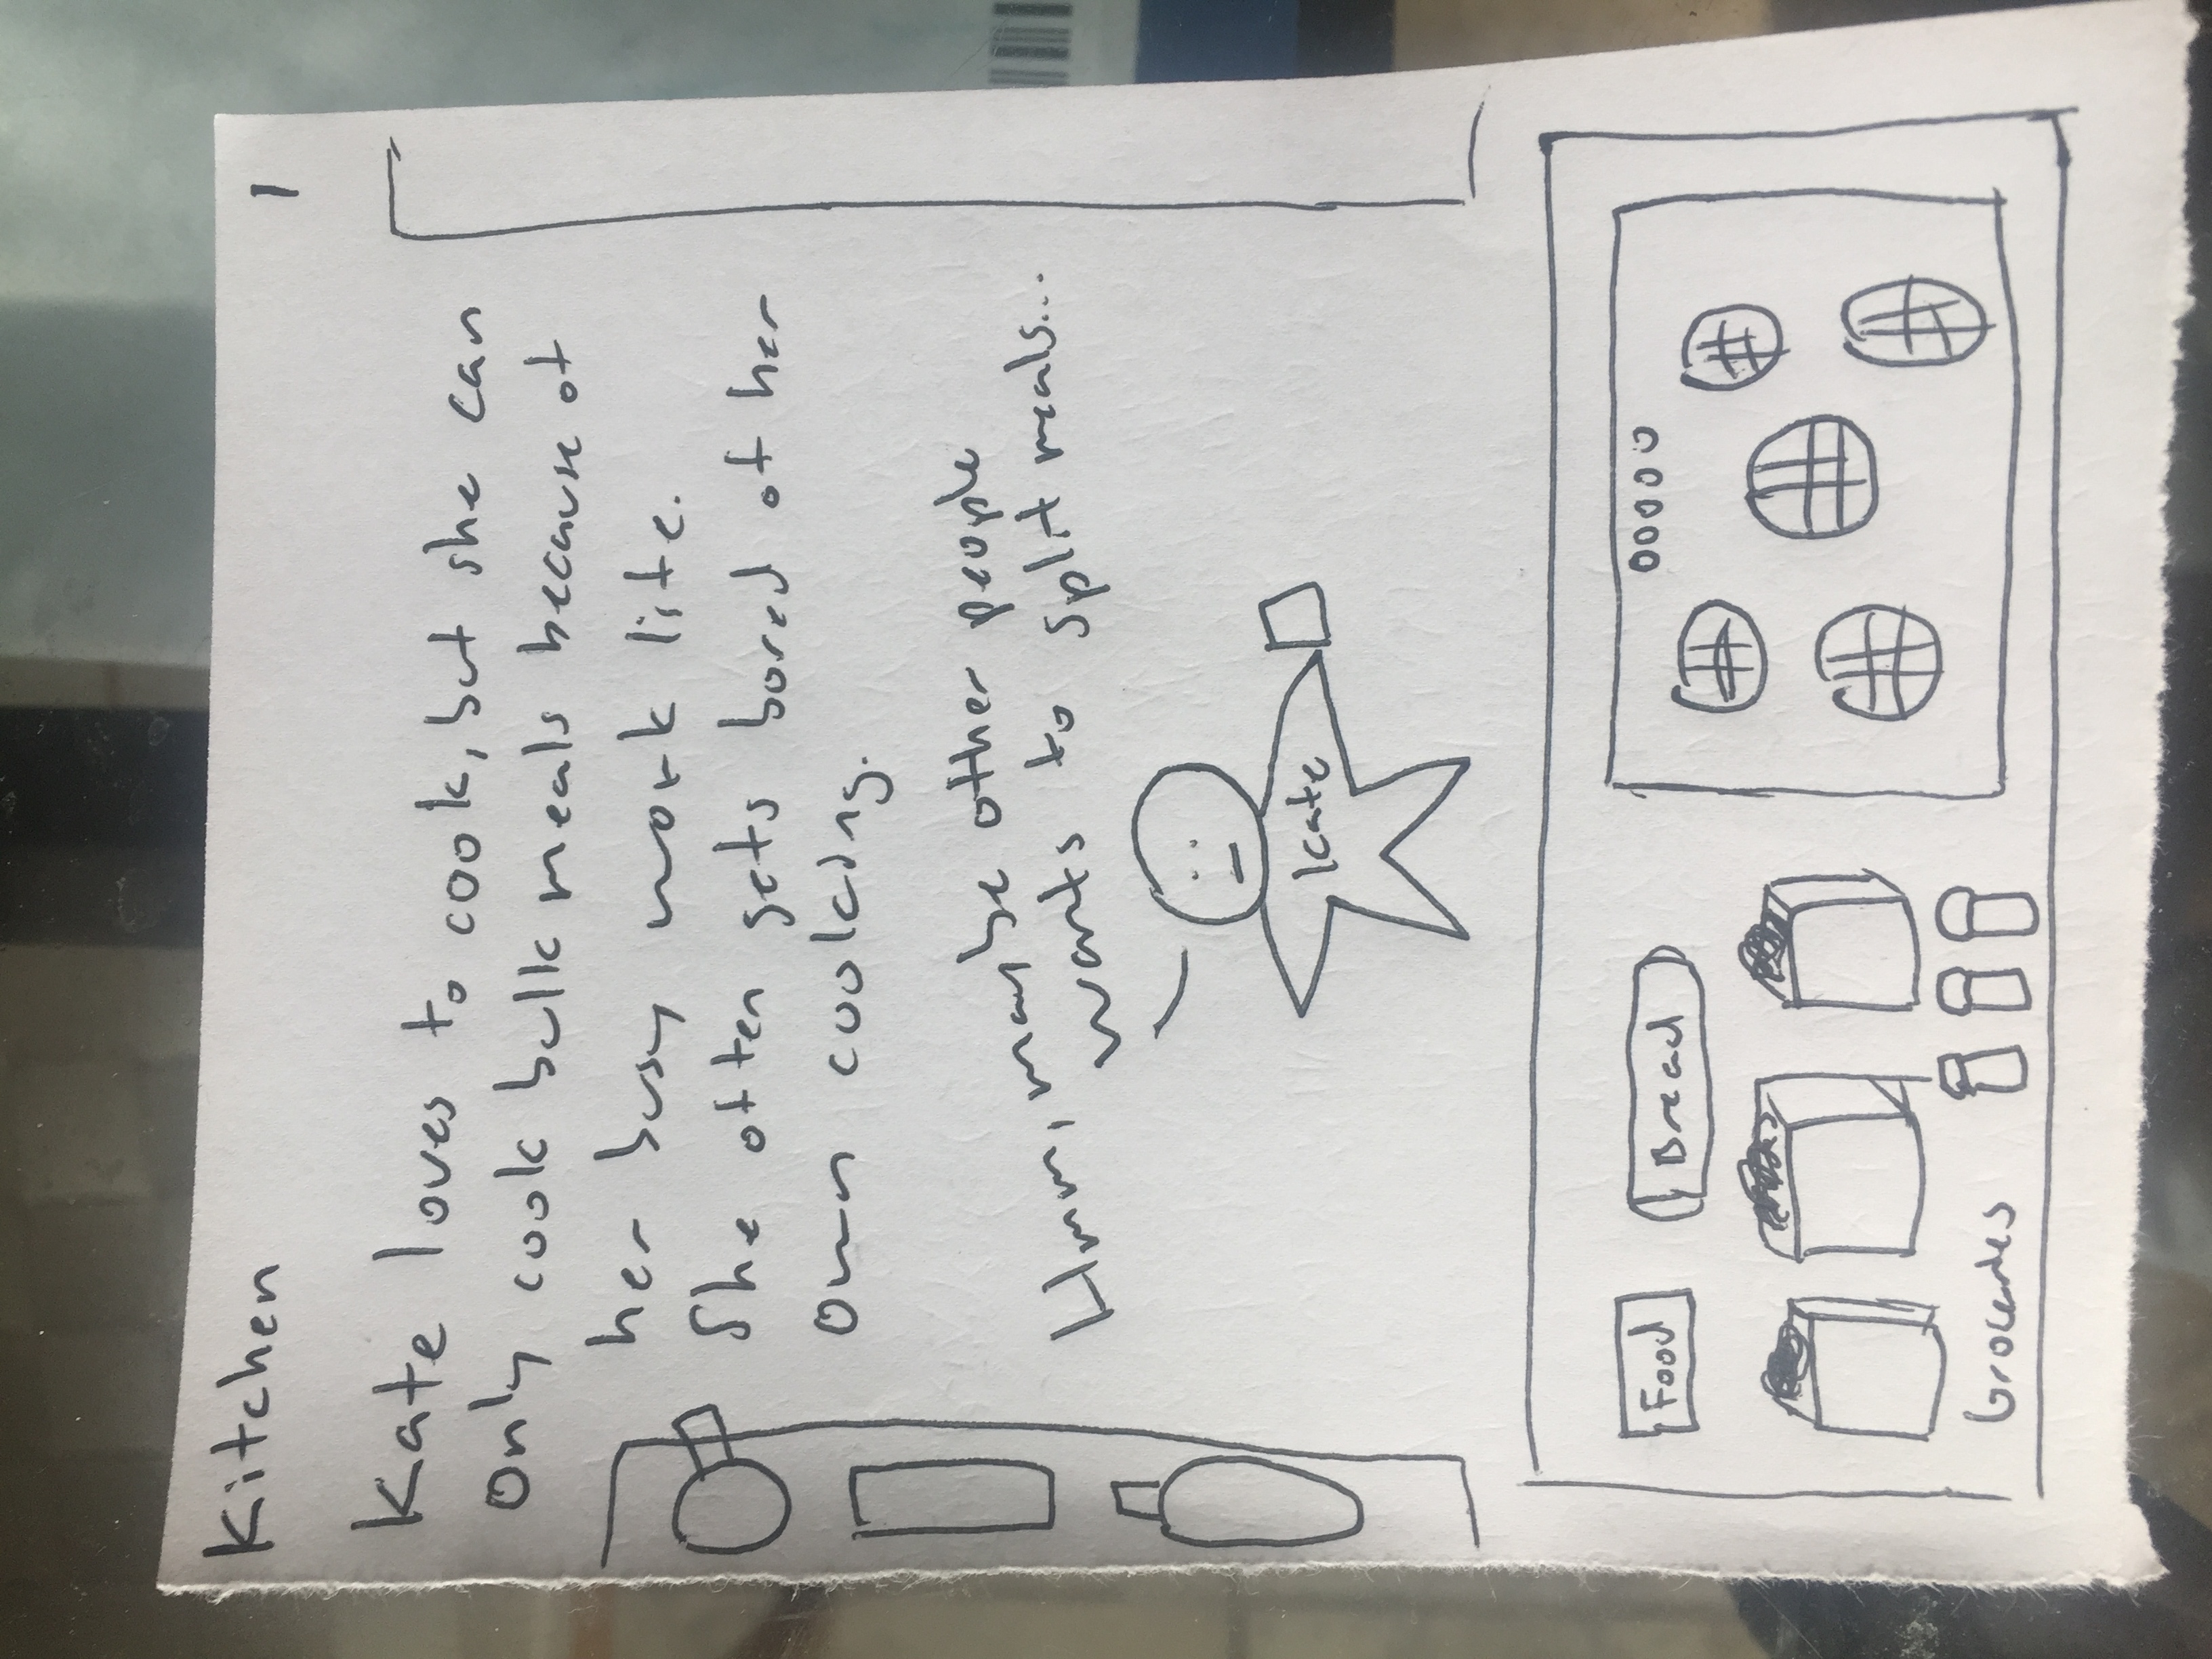 Kitchen 1
Kate loves to cook, but she can
Only cook bulk meals because of
her busy work life.
She often gets bored of her
Own cooking.
Hmm, maybe other people
wants to split meals...
Kate
Food
Bread
Groceries